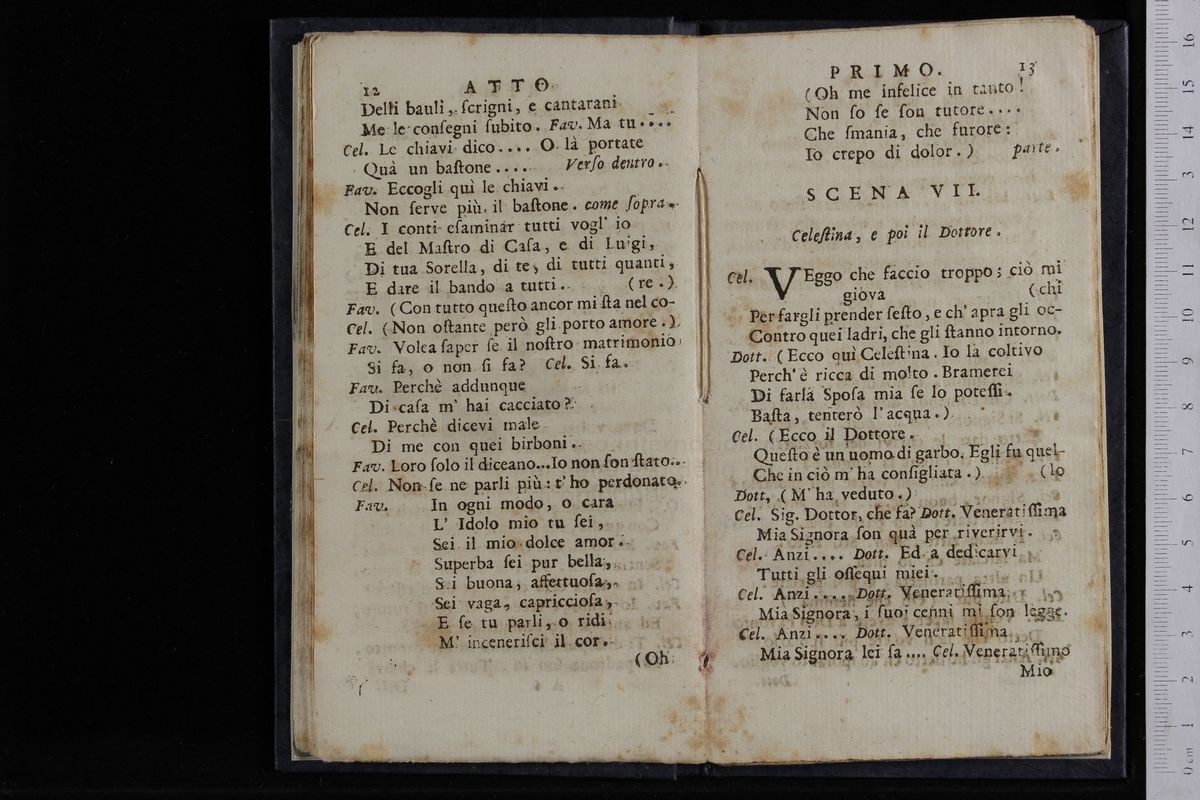 12 ATTO
Delli bauli, ſcrigni, e cantarani
Me le conſegni ſubito. Fav. Ma tu....
Cel. Le chiavi dico.... O là portate
Quà un baſtone.... Verſo dentro.
Fav. Eccogli quì le chiavi.
Non ſerve più il baſtone. come ſopra.
Cel. I conti eſaminar tutti vogl' io
E del Maſtro di Caſa, e di Luigi,
Di tua Sorella, di te, di tutti quanti,
E dare il bando a tutti. (re.)
Fav. (Con tutto queſto ancor mi ſta nel co-
Cel. (Non oſtante però gli porto amore.)
Fav. Volea ſaper ſe il noſtro matrimonio
Si fa, o non ſi fa? Cel. Si fa.
Fav. Perchè addunque
Di caſa m' hai cacciato?
Cel. Perchè dicevi male
Di me con quei birboni.
Fav. Loro ſolo il diceano...Io non ſon ſtato..
Cel. Non ſe ne parli più: t' ho perdonato.
Fav. In ogni modo, o cara
L' Idolo mio tu ſei,
Sei il mio dolce amor.
Superba ſei pur bella,
Sei buona, affettuoſa,
Sei vaga, capriccioſa,
E ſe tu parli, o ridi
M' inceneriſci il cor.
(Oh
PRIMO. 13
(Oh me infelice in tanto!
Non ſo ſe ſon tutore....
Che ſmania, che furore:
Io crepo di dolor.) parte.
SCENA VII.
Celeſtina, e poi il Dottore.
Cel. VEggo che faccio troppo; ciò mi
giova (chi
Per fargli prender ſeſto, e ch' apra gli oc-
Contro quei ladri, che gli ſtanno intorno.
Dott. (Ecco quì Celeſtina. Io la coltivo
Perch' è ricca di molto. Bramerei
Di farla Spoſa mia ſe lo poteſſi.
Baſta, tenterò l' acqua.)
Cel. (Ecco il Dottore.
Queſto è un uomo di garbo. Egli fu quel-
Che in ciò m' ha conſigliata.) (lo
Dott, (M' ha veduto.)
Cel. Sig. Dottor, che fa? Dott. Veneratiſſima
Mia Signora ſon quà per riverirvi.
Cel. Anzi.... Dott. Ed a dedicarvi
Tutti gli oſſequi miei.
Cel. Anzi.... Dott. Veneratiſſima
Mia Signora, i ſuoi cenni mi ſon legge.
Cel. Anzi.... Dott. Veneratiſſima
Mia Signora lei ſa.... Cel. Veneratiſſimo
Mio
16
15
14
13
12
11
10
9
8
7
6
5
4
3
2
1
0 cm